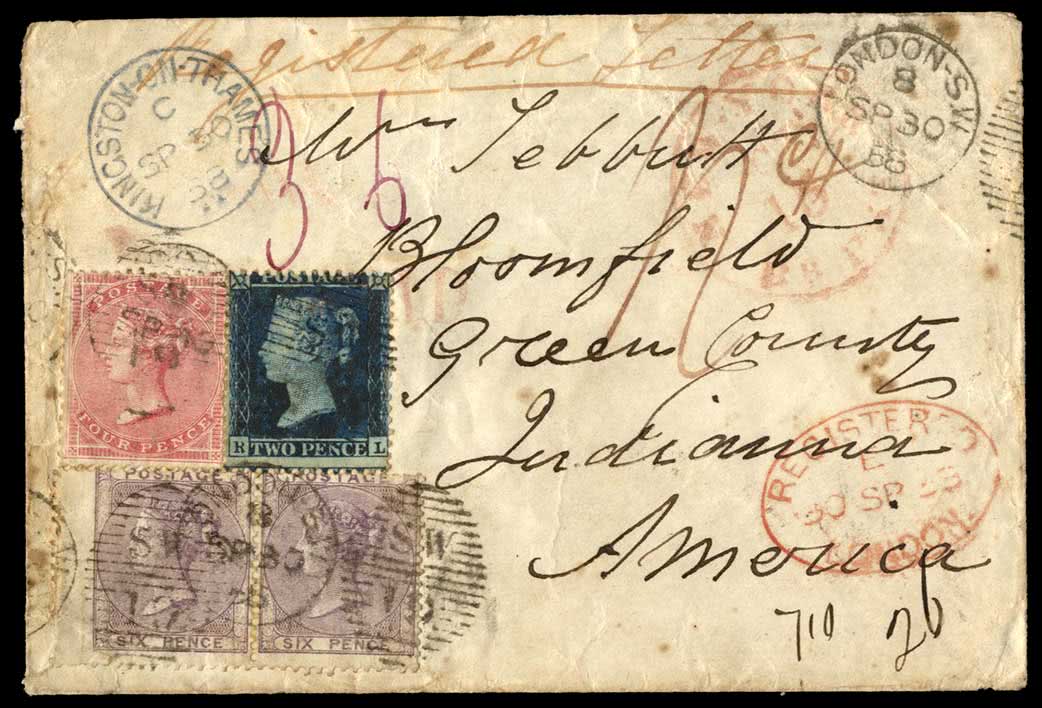 Registered Letter
KINGSTON-ON-THAMES
C
SP 30
58
LONDON-S.W
8
SP 30
58
3 6
Mrs Tebbutt
Bloomfield
Green County
Indianna
America
POSTAGE
FOUR PENCE
POSTAGE
R TWO PENCE L
POSTAGE
SIX PENCE
POSTAGE
SIX PENCE
SW
SP 30
SW
REGISTERED
E
30 SP 58
LONDON
710